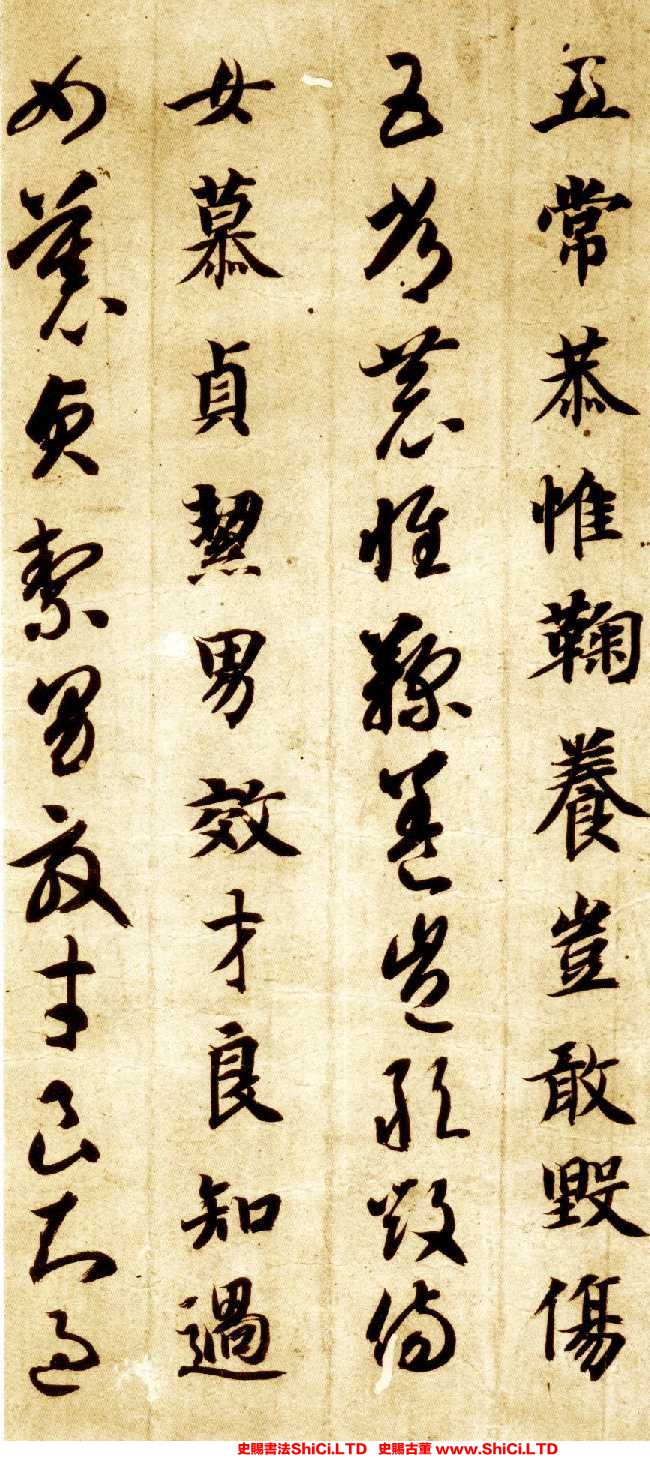 五常恭惟鞠養豈敢毀傷
五常恭惟鞠養豈敢毀傷
女慕貞絜男效才良知過
女慕貞絜男效才良知過
史賜書法ShiCi.LTD 史賜古董 www.ShiCi.LTD